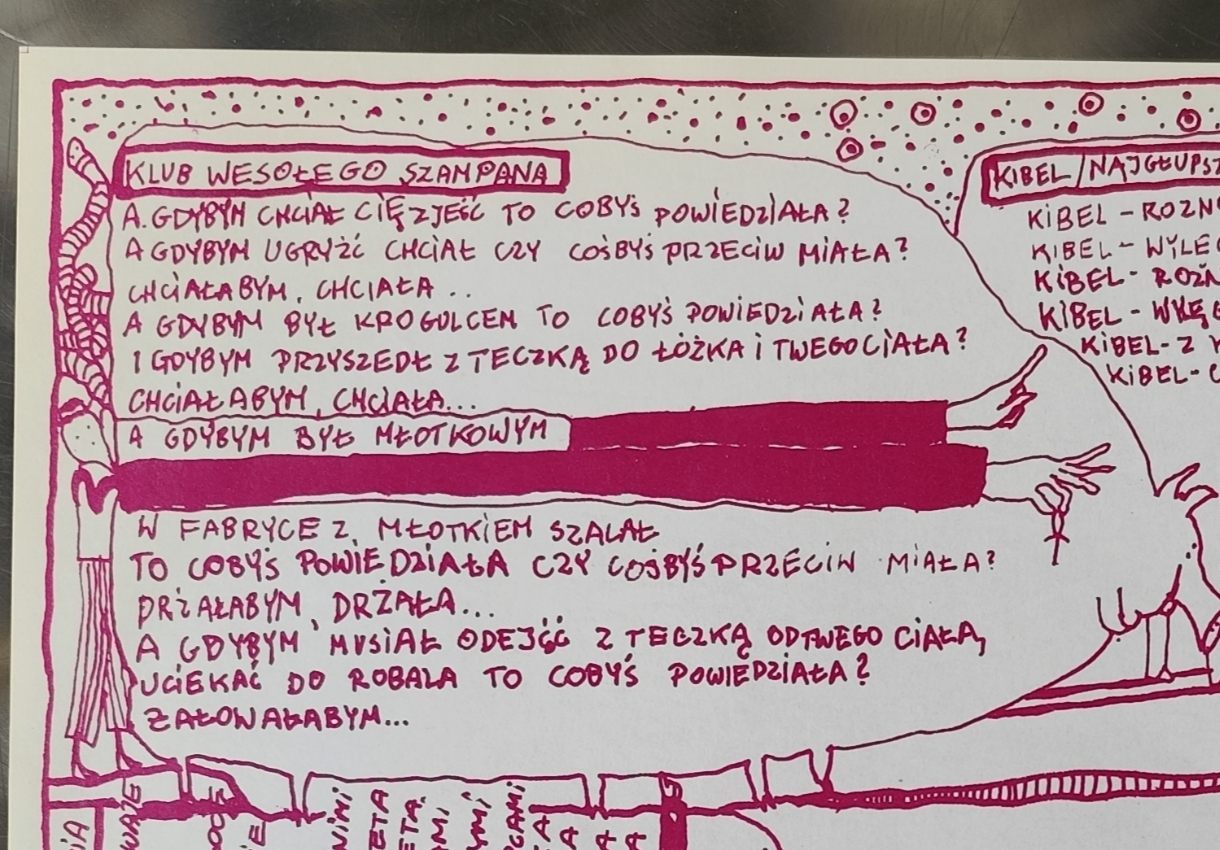 KLUB WESOŁEGO SZAMPANA
A GDYBYM CHCIAŁ CIĘ ZJEŚĆ TO COBYŚ POWIEDZIAŁA?
A GDYBYM UGRYŹĆ CHCIAŁ CZY COŚBYŚ PRZECIW MIAŁA?
CHCIAŁABYM, CHCIAŁA..
A GDYBYM BYŁ KROGULCEM TO COBYŚ POWIEDZIAŁA?
I GDYBYM PRZYSZEDŁ Z TECZKĄ DO ŁÓŻKA I TWEGO CIAŁA?
CHCIAŁABYM, CHCIAŁA...
A GDYBYM BYŁ MŁOTKOWYM
W FABRYCE Z MŁOTKIEM SZALAŁ
TO COBYŚ POWIEDZIAŁA CZY COŚBYŚ PRZECIW MIAŁA?
DRŻAŁABYM, DRŻAŁA...
A GDYBYM MUSIAŁ ODEJŚĆ Z TECZKĄ OD TWEGO CIAŁA,
UCIEKAĆ DO ROBALA TO COBYŚ POWIEDZIAŁA?
ŻAŁOWAŁABYM...
KIBEL/NAJGŁUPSZ
KIBEL - ROZN
KIBEL - WYLE
KIBEL - ROZN
KIBEL - WYLĘG
KIBEL - Z
KIBEL -